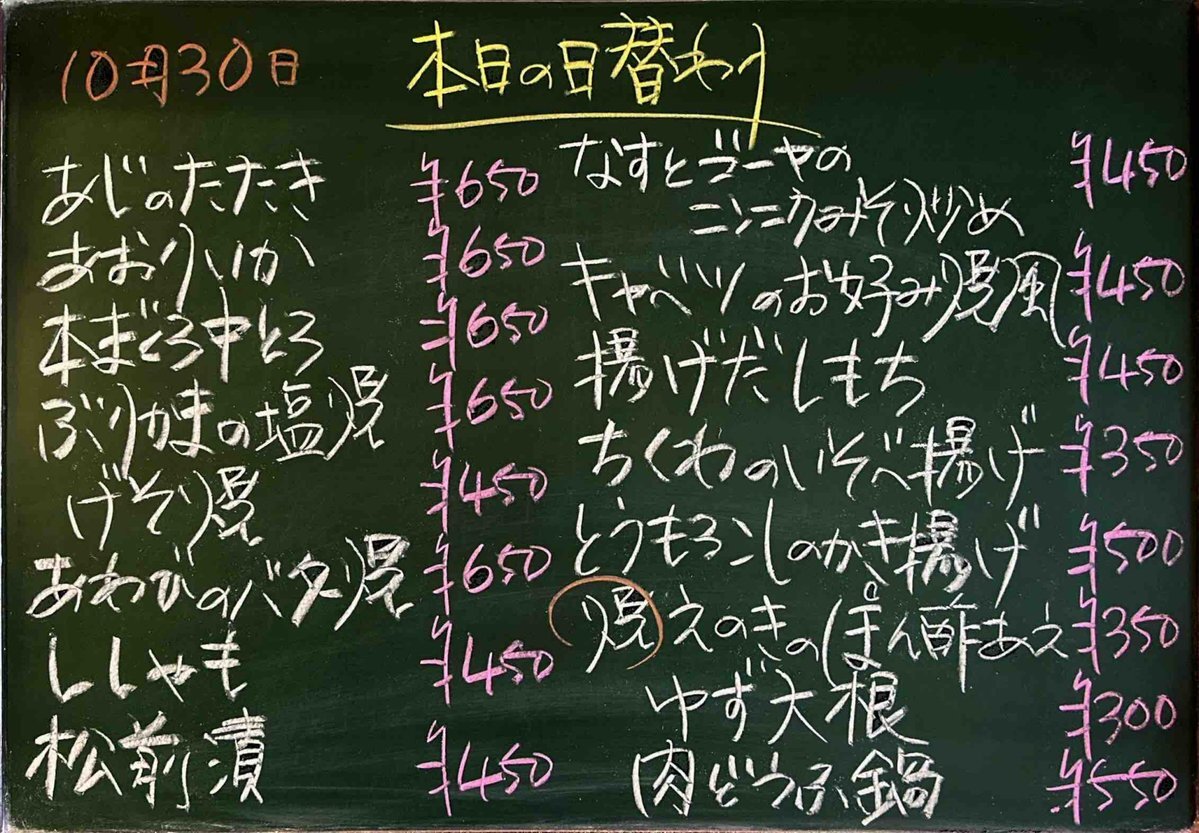 10月30日
本日の日替わり
あじのたたき ¥650
あおりいか ¥650
本まぐろ中とろ ¥650
ぶりかまの塩焼 ¥650
げそ焼 ¥450
あわびのバター焼 ¥650
ししゃも ¥450
松前漬 ¥450
なすとゴーヤの ¥450
ニンニクみそ炒め
キャベツのお好み焼風 ¥450
揚げだしもち ¥450
ちくわのいそべ揚げ ¥350
とうもろこしのかき揚げ ¥500
焼えのきのぽん酢あえ ¥350
ゆず大根 ¥300
肉どうふ鍋 ¥550